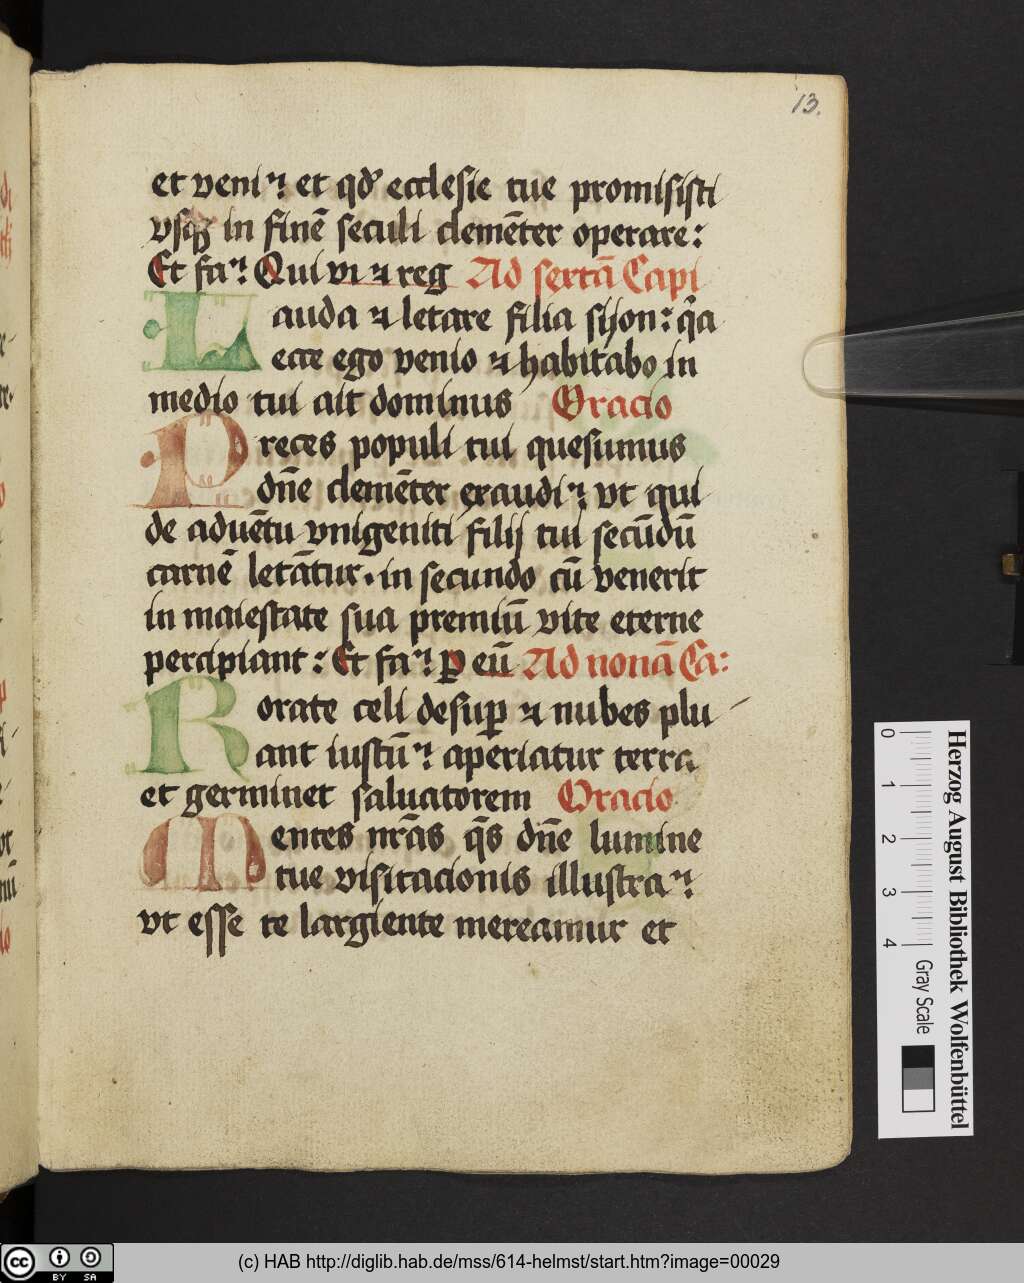 13.
et veni⁊ et qd' ecclesie tue promisisti
vsqꝫ in finē seculi clemēter operare:
Et fa⁊ Qui vi ⁊ reg Ad sextā Capi
Lauda ⁊ letare filia syon: q̄a
ecce ego venio ⁊ habitabo in
medio tui ait dominus Oracio
Preces populi tui quesumus
dn̄e clemēter exaudi⁊ vt qui
de aduētu vnigeniti filij tui secūdū
carnē letātur. in secundo cū venerit
in maiestate sua premiū vite eterne
percipiant: Et fa⁊ ꝑ eū Ad nonā Ca:
Rorate celi desuꝑ ⁊ nubes plu-
ant iustū⁊ aperiatur terra
et germinet saluatorem Oracio
Mentes nr̄as q̄s dn̄e lumine
tue visitacionis illustra⁊
vt esse te largiente mereamur et
0 1 2 3 4
Gray Scale
Herzog August Bibliothek Wolfenbüttel
cc BY SA
(c) HAB http://diglib.hab.de/mss/614-helmst/start.htm?image=00029